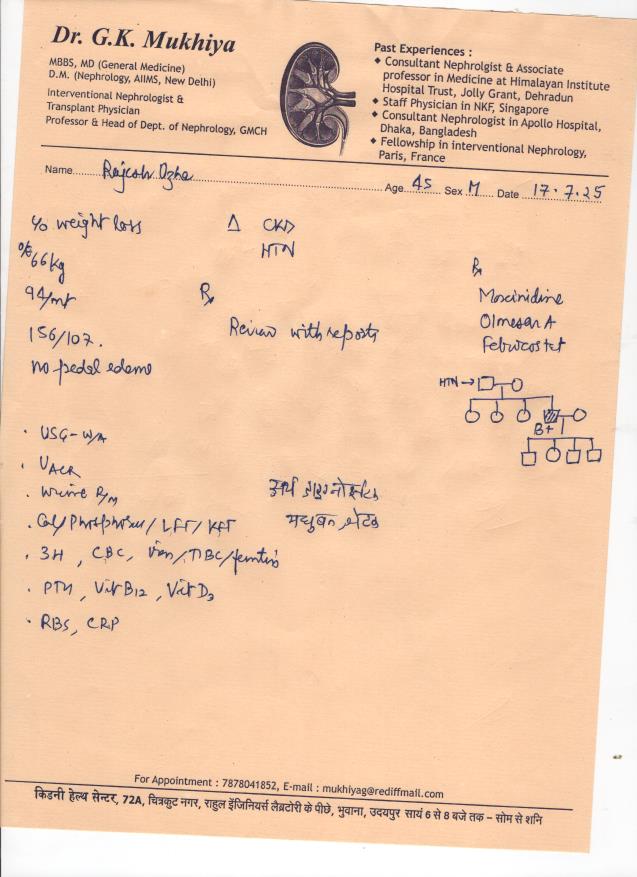 Dr. G.K. Mukhiya
MBBS, MD (General Medicine)
D.M. (Nephrology, AIIMS, New Delhi)
Interventional Nephrologist &
Transplant Physician
Professor & Head of Dept. of Nephrology, GMCH
Past Experiences :
◆ Consultant Nephrolgist & Associate
professor in Medicine at Himalayan Institute
Hospital Trust, Jolly Grant, Dehradun
◆ Staff Physician in NKF, Singapore
◆ Consultant Nephrologist in Apollo Hospital,
Dhaka, Bangladesh
◆ Fellowship in interventional Nephrology,
Paris, France
Name Rajesh Ozha Age 45 Sex M Date 17.7.25
c/o weight loss
o/e 66kg
94/mt
156/107.
no pedal edema
Δ CKD
HTN
Rx
Review with reports
Rx
Moxinidine
Olmesar A
Febucostat
HTN →
B+
· USG-W/A
· UACR
· Urine R/M
· Cal/Phosphorus/LFT/KFT
· 3H, CBC, Iron/TIBC/ferritin
· PTH, Vit B12, Vit D3
· RBS, CRP
मधुबन
For Appointment : 7878041852, E-mail : mukhiyag@rediffmail.com
किडनी हेल्थ सेन्टर, 72A, चित्रकुट नगर, राहुल इंजिनियर्स लैब्रटोरी के पीछे, भुवाना, उदयपुर सायं 6 से 8 बजे तक – सोम से शनि